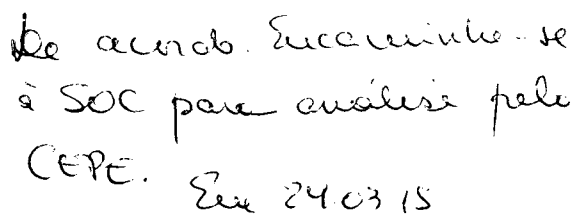 De acordo. Encaminhe-se
à SOC para análise pelo
CEPE.
Em 24.03.15